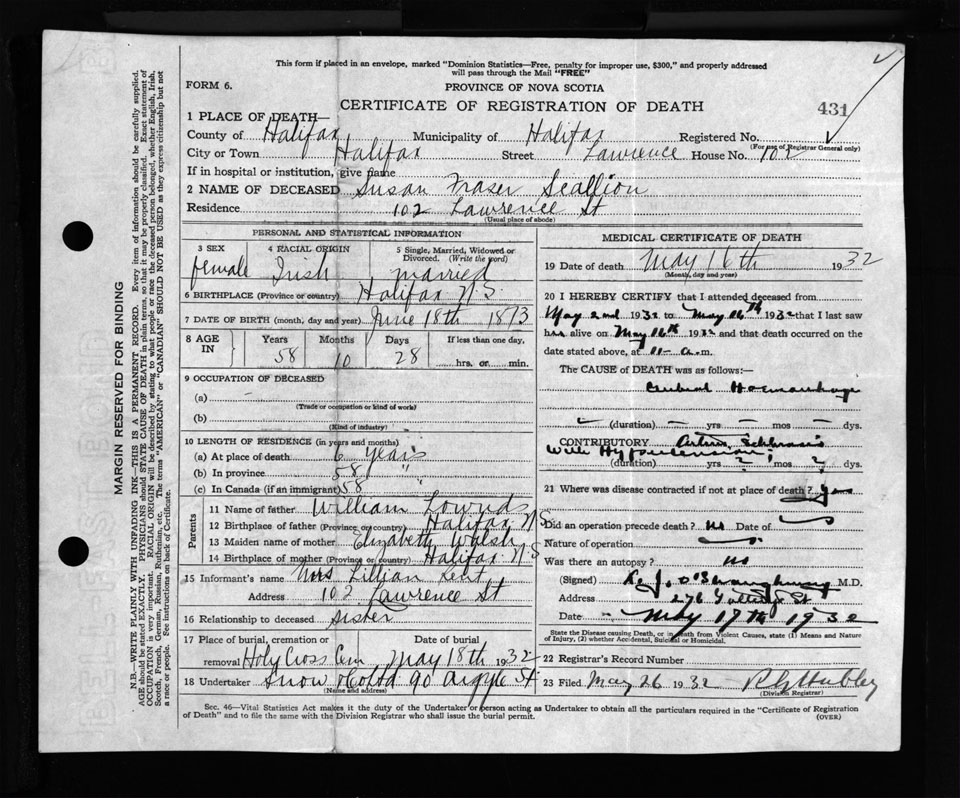 This form if placed in an envelope, marked "Dominion Statistics—Free, penalty for improper use, $300," and properly addressed
will pass through the Mail "FREE"
FORM 6.
PROVINCE OF NOVA SCOTIA
CERTIFICATE OF REGISTRATION OF DEATH
431
1 PLACE OF DEATH—
County of Halifax Municipality of Halifax Registered No.
(For use of Registrar General only)
City or Town Halifax Street Lawrence House No. 102
If in hospital or institution, give name
2 NAME OF DECEASED Susan Fraser Scallion
Residence 102 Lawrence St
(Usual place of abode)
PERSONAL AND STATISTICAL INFORMATION
3 SEX 4 RACIAL ORIGIN 5 Single, Married, Widowed or Divorced. (Write the word)
female Irish married
6 BIRTHPLACE (Province or country) Halifax N.S.
7 DATE OF BIRTH (month, day and year) June 18th 1873
8 AGE IN Years Months Days If less than one day,
58 10 28 hrs. or min.
9 OCCUPATION OF DECEASED
(a)
(Trade or occupation or kind of work)
(b)
(Kind of industry)
10 LENGTH OF RESIDENCE (in years and months)
(a) At place of death 6 years
(b) In province 58 "
(c) In Canada (if an immigrant) 58
Parents
11 Name of father William Lownds
12 Birthplace of father (Province or country) Halifax N.S
13 Maiden name of mother Elizabeth Walsh
14 Birthplace of mother (Province or country) Halifax N.S
15 Informant's name Mrs Lillian Kent
Address 102 Lawrence St
16 Relationship to deceased Sister
17 Place of burial, cremation or Date of burial
removal Holy Cross Cem May 18th 1932
18 Undertaker Snow & Co Ltd 90 Argyle St
(Name and address)
MEDICAL CERTIFICATE OF DEATH
19 Date of death May 16th 1932
(Month, day and year)
20 I HEREBY CERTIFY that I attended deceased from
May 2nd 1932 to May 16th 1932 that I last saw
her alive on May 16th 1932 and that death occurred on the
date stated above, at 11- a.m.
The CAUSE of DEATH was as follows:—
Cerebral Hoemorrhage
(duration) yrs mos dys.
CONTRIBUTORY Arterio Sclerosis
With Hypertension
(duration) yrs ? mos ? dys.
21 Where was disease contracted if not at place of death?
Did an operation precede death? no Date of
Nature of operation
Was there an autopsy? no
(Signed) M.D.
Address 276 St
Date May 17th 1932
State the Disease causing Death, or in death from Violent Causes, state (1) Means and Nature
of Injury, (2) whether Accidental, Suicidal or Homicidal.
22 Registrar's Record Number
23 Filed May 26 1932
(Division Registrar)
Sec. 46—Vital Statistics Act makes it the duty of the Undertaker or person acting as Undertaker to obtain all the particulars required in the "Certificate of Registration
of Death" and to file the same with the Division Registrar who shall issue the burial permit. (OVER)
MARGIN RESERVED FOR BINDING
N.B.—WRITE PLAINLY WITH UNFADING INK—THIS IS A PERMANENT RECORD. Every item of information should be carefully supplied.
AGE should be stated EXACTLY. PHYSICIANS should STATE CAUSE OF DEATH in plain terms, so that it may be properly classified. Exact statement of
OCCUPATION is very important. RACIAL ORIGIN will be described by stating to what people or race the deceased person belonged, whether English, Irish,
Scotch, French, German, Russian, Ruthenian, etc. The terms "AMERICAN" or "CANADIAN" SHOULD NOT BE USED as they express citizenship but not
a race or people. See instructions on back of Certificate.